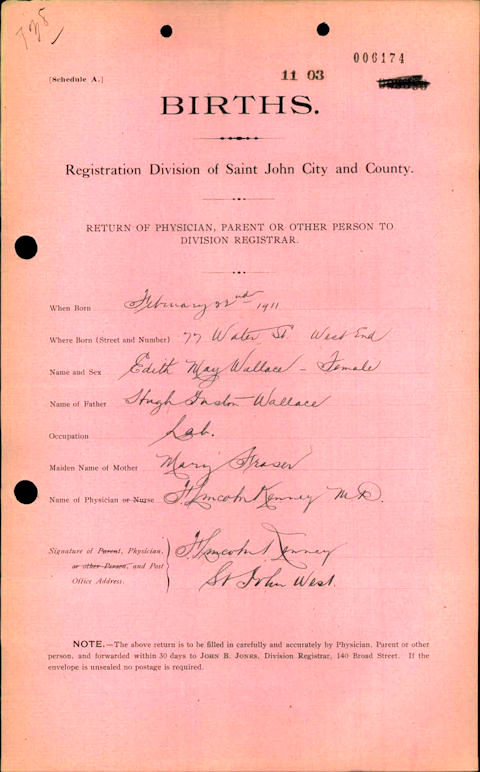 738
006174
11 03
(Schedule A.)
BIRTHS.
Registration Division of Saint John City and County.
RETURN OF PHYSICIAN, PARENT OR OTHER PERSON TO
DIVISION REGISTRAR.
When Born February 22nd 1911
Where Born (Street and Number) 77 Water St. West End
Name and Sex Edith May Wallace - Female
Name of Father Hugh Wallace
Occupation Lab.
Maiden Name of Mother Mary Fraser
Name of Physician or Nurse F. Lincoln Kenney M.D.
Signature of Parent, Physician, F. Lincoln Kenney
or other Person, and Post
Office Address. St John West.
NOTE.—The above return is to be filled in carefully and accurately by Physician, Parent or other
person, and forwarded within 30 days to JOHN B. JONES, Division Registrar, 140 Broad Street. If the
envelope is unsealed no postage is required.